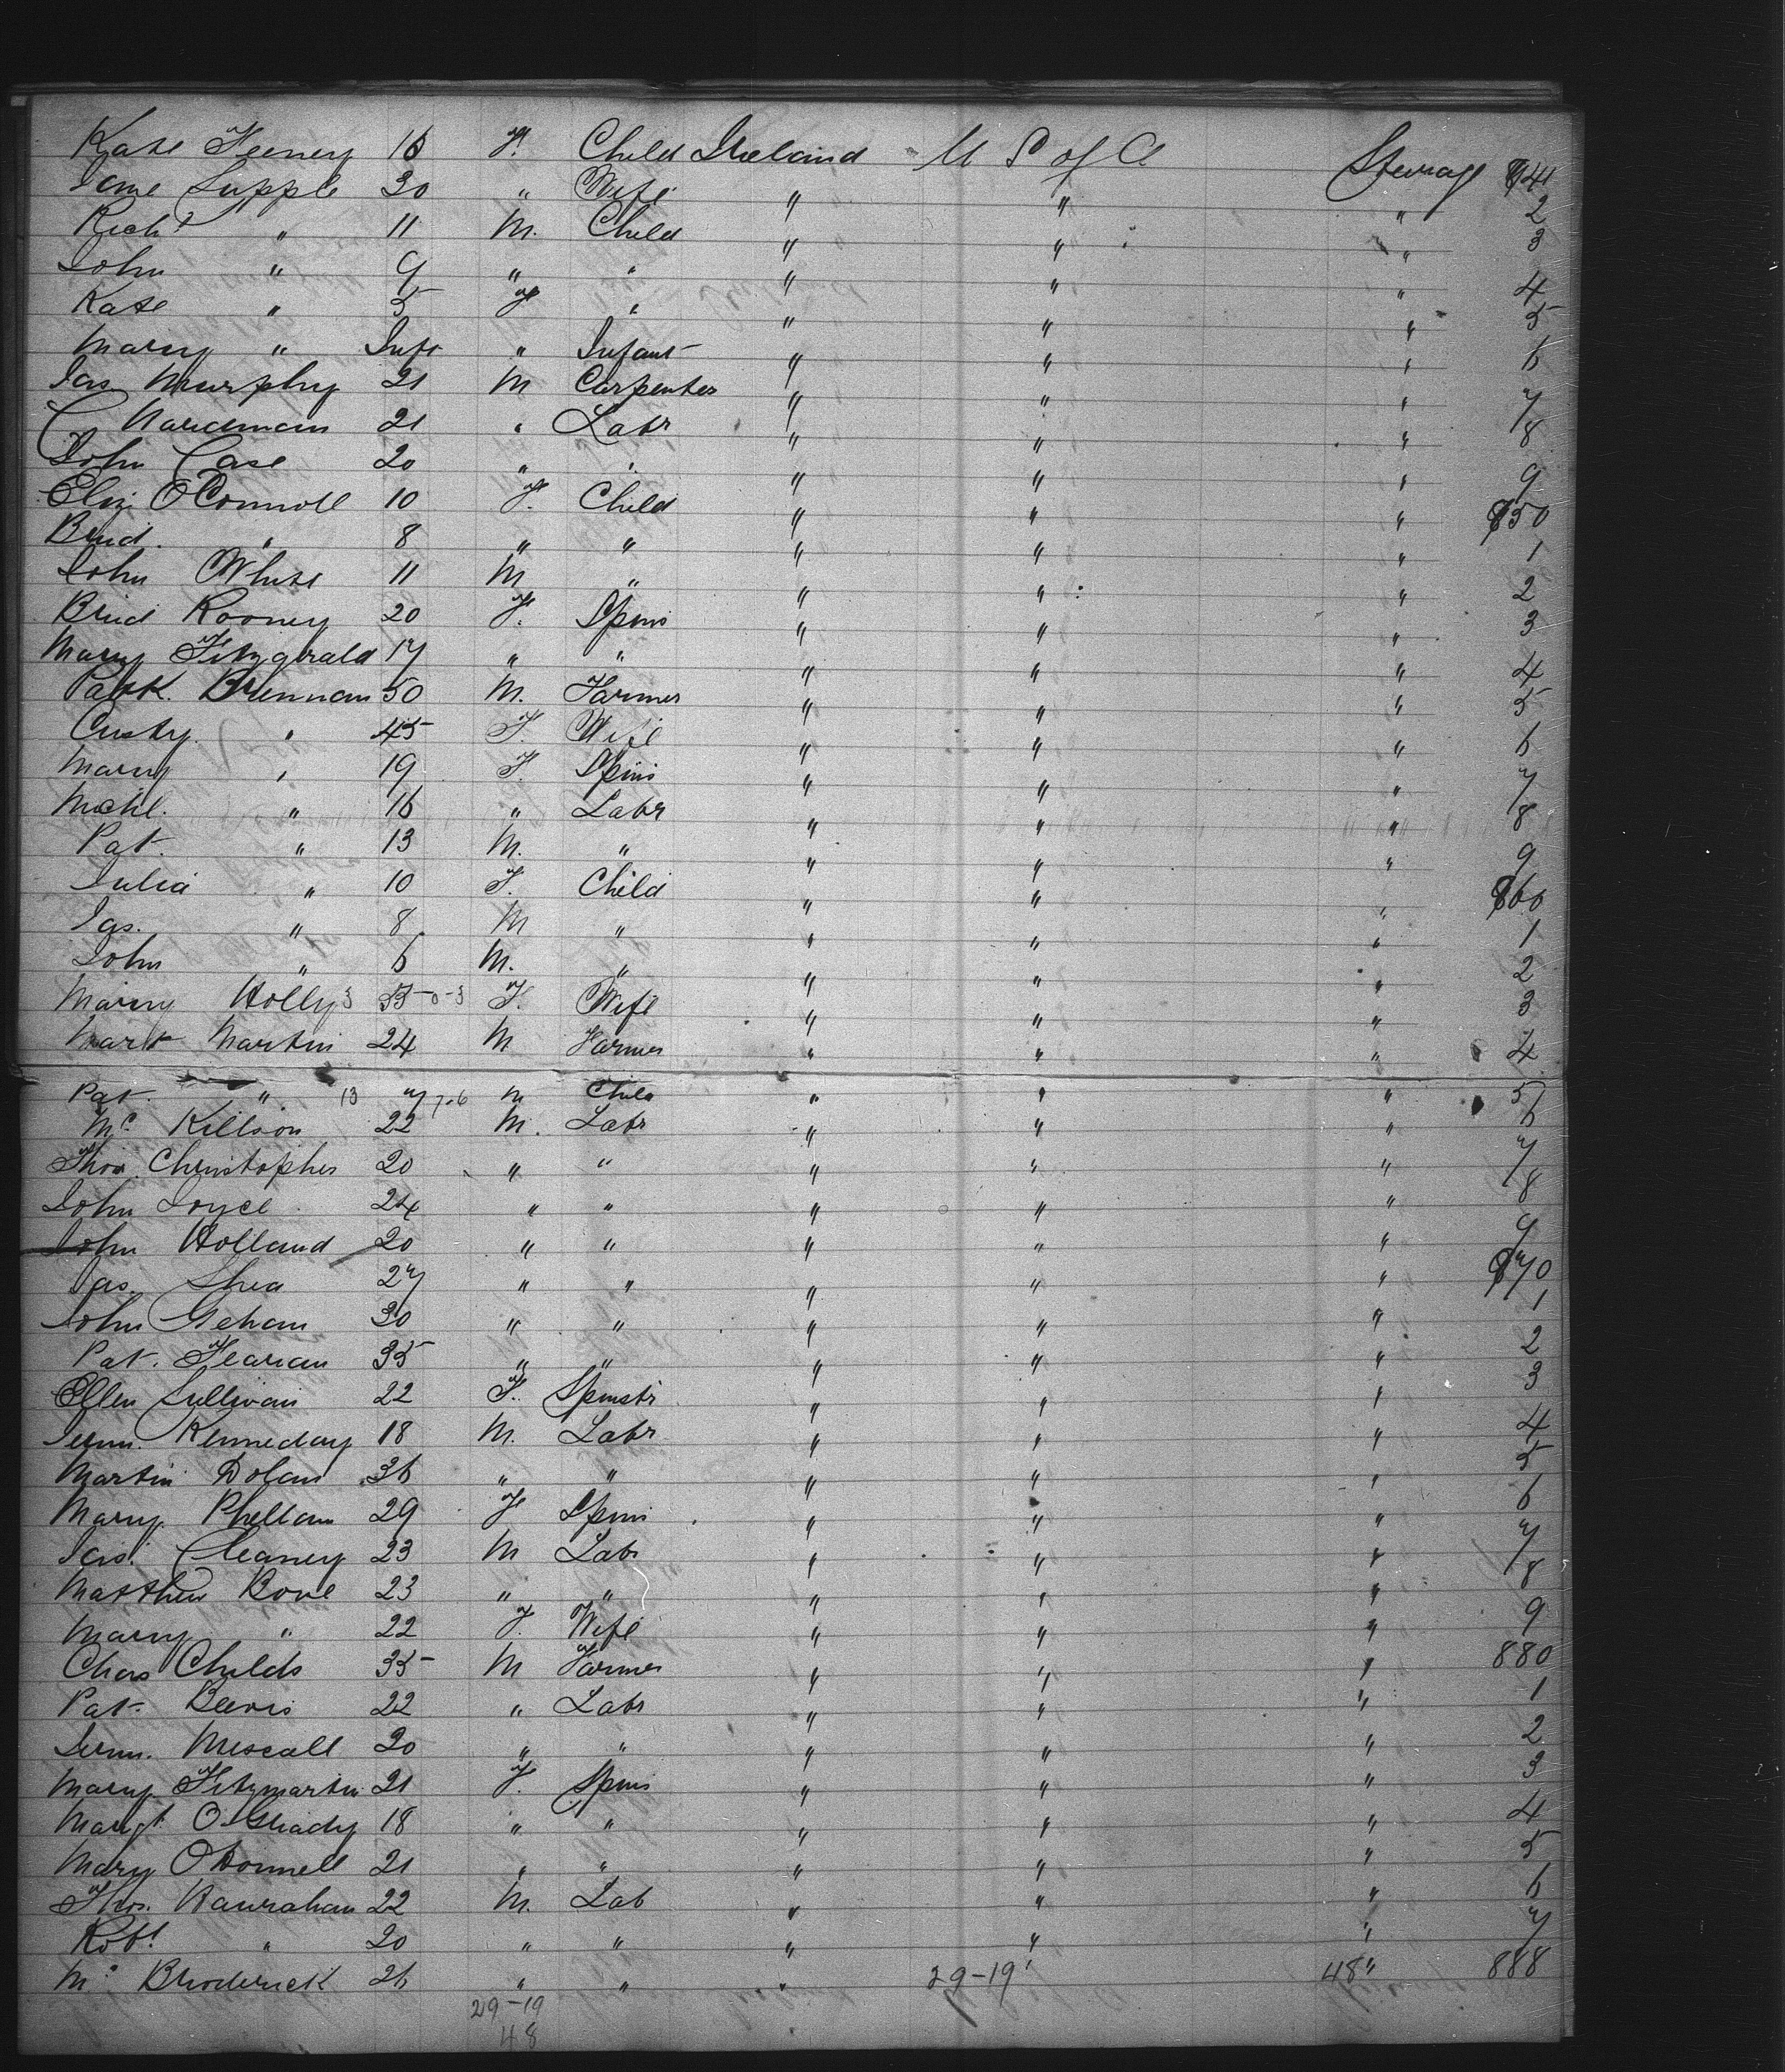 Kate Feeney 16 F. Child Ireland U S of A Steerage 841
Jane Supple 30 " Wife " " " 2
Richd " 11 M. Child " " " 3
John " 9 " " " " " 4
Kate " 5 F " " " " 5
Mary " Inft " Infant " " " 6
Jas Murphy 21 M Carpenter " " " 7
C Hardman 21 " Labr " " " 8
John Case 20 " " " " " 9
Eliz. O'Connell 10 F. Child " " " 850
Brid. " 8 " " " " " 1
John White 11 M " " " " 2
Brid Rooney 20 F. Spins " " " 3
Mary Fitzgerald 17 " " " " " 4
Patk. Brennan 50 M. Farmer " " " 5
Custy. " 45 F. Wife " " " 6
Mary " 19 F. Spins " " " 7
Michl. " 16 " Labr " " " 8
Pat. " 13 M. " " " " 9
Julia " 10 F. Child " " " 860
Jas. " 8 M " " " " 1
John " 6 M. " " " " 2
Mary Holly 3 35-0-3 F. Wife " " " 3
Mart Martin 24 M Farmer " " " 4
Pat. " 13 7 7-6 M Child " " " 5
Mc Killson 22 M. Labr " " " 6
Thos. Christopher 20 " " " " " 7
John Joyce 24 " " " " " 8
John Holland 20 " " " " " 9
Jas. Shea 27 " " " " " 870
John Geham 30 " " " " " 1
Pat. Flearian 35 " " " " " 2
Ellen Sullivan 22 F. Spinstr " " " 3
Jerm. Kenneday 18 M. Labr " " " 4
Martin Dolan 36 " " " " " 5
Mary Phellam 29 F Spins " " " 6
Jas. Cleaney 23 M Labr " " " 7
Matthew Bove 23 " " " " " 8
Mary " 22 F. Wife " " " 9
Chas Childs 35 M Farmer " " " 880
Pat. Beevis 22 " Labr " " " 1
Jerm. Mescall 20 " " " " " 2
Mary Fitzmartin 21 F. Spins " " " 3
Margt. O'Grady 18 " " " " " 4
Mary O'Donnell 21 " " " " " 5
Thos. Hanrahan 22 M. Lab " " " 6
Robt. " 20 " " " " " 7
Mc Broderick 26 " " " 29-19 48 " 888
29-19
48